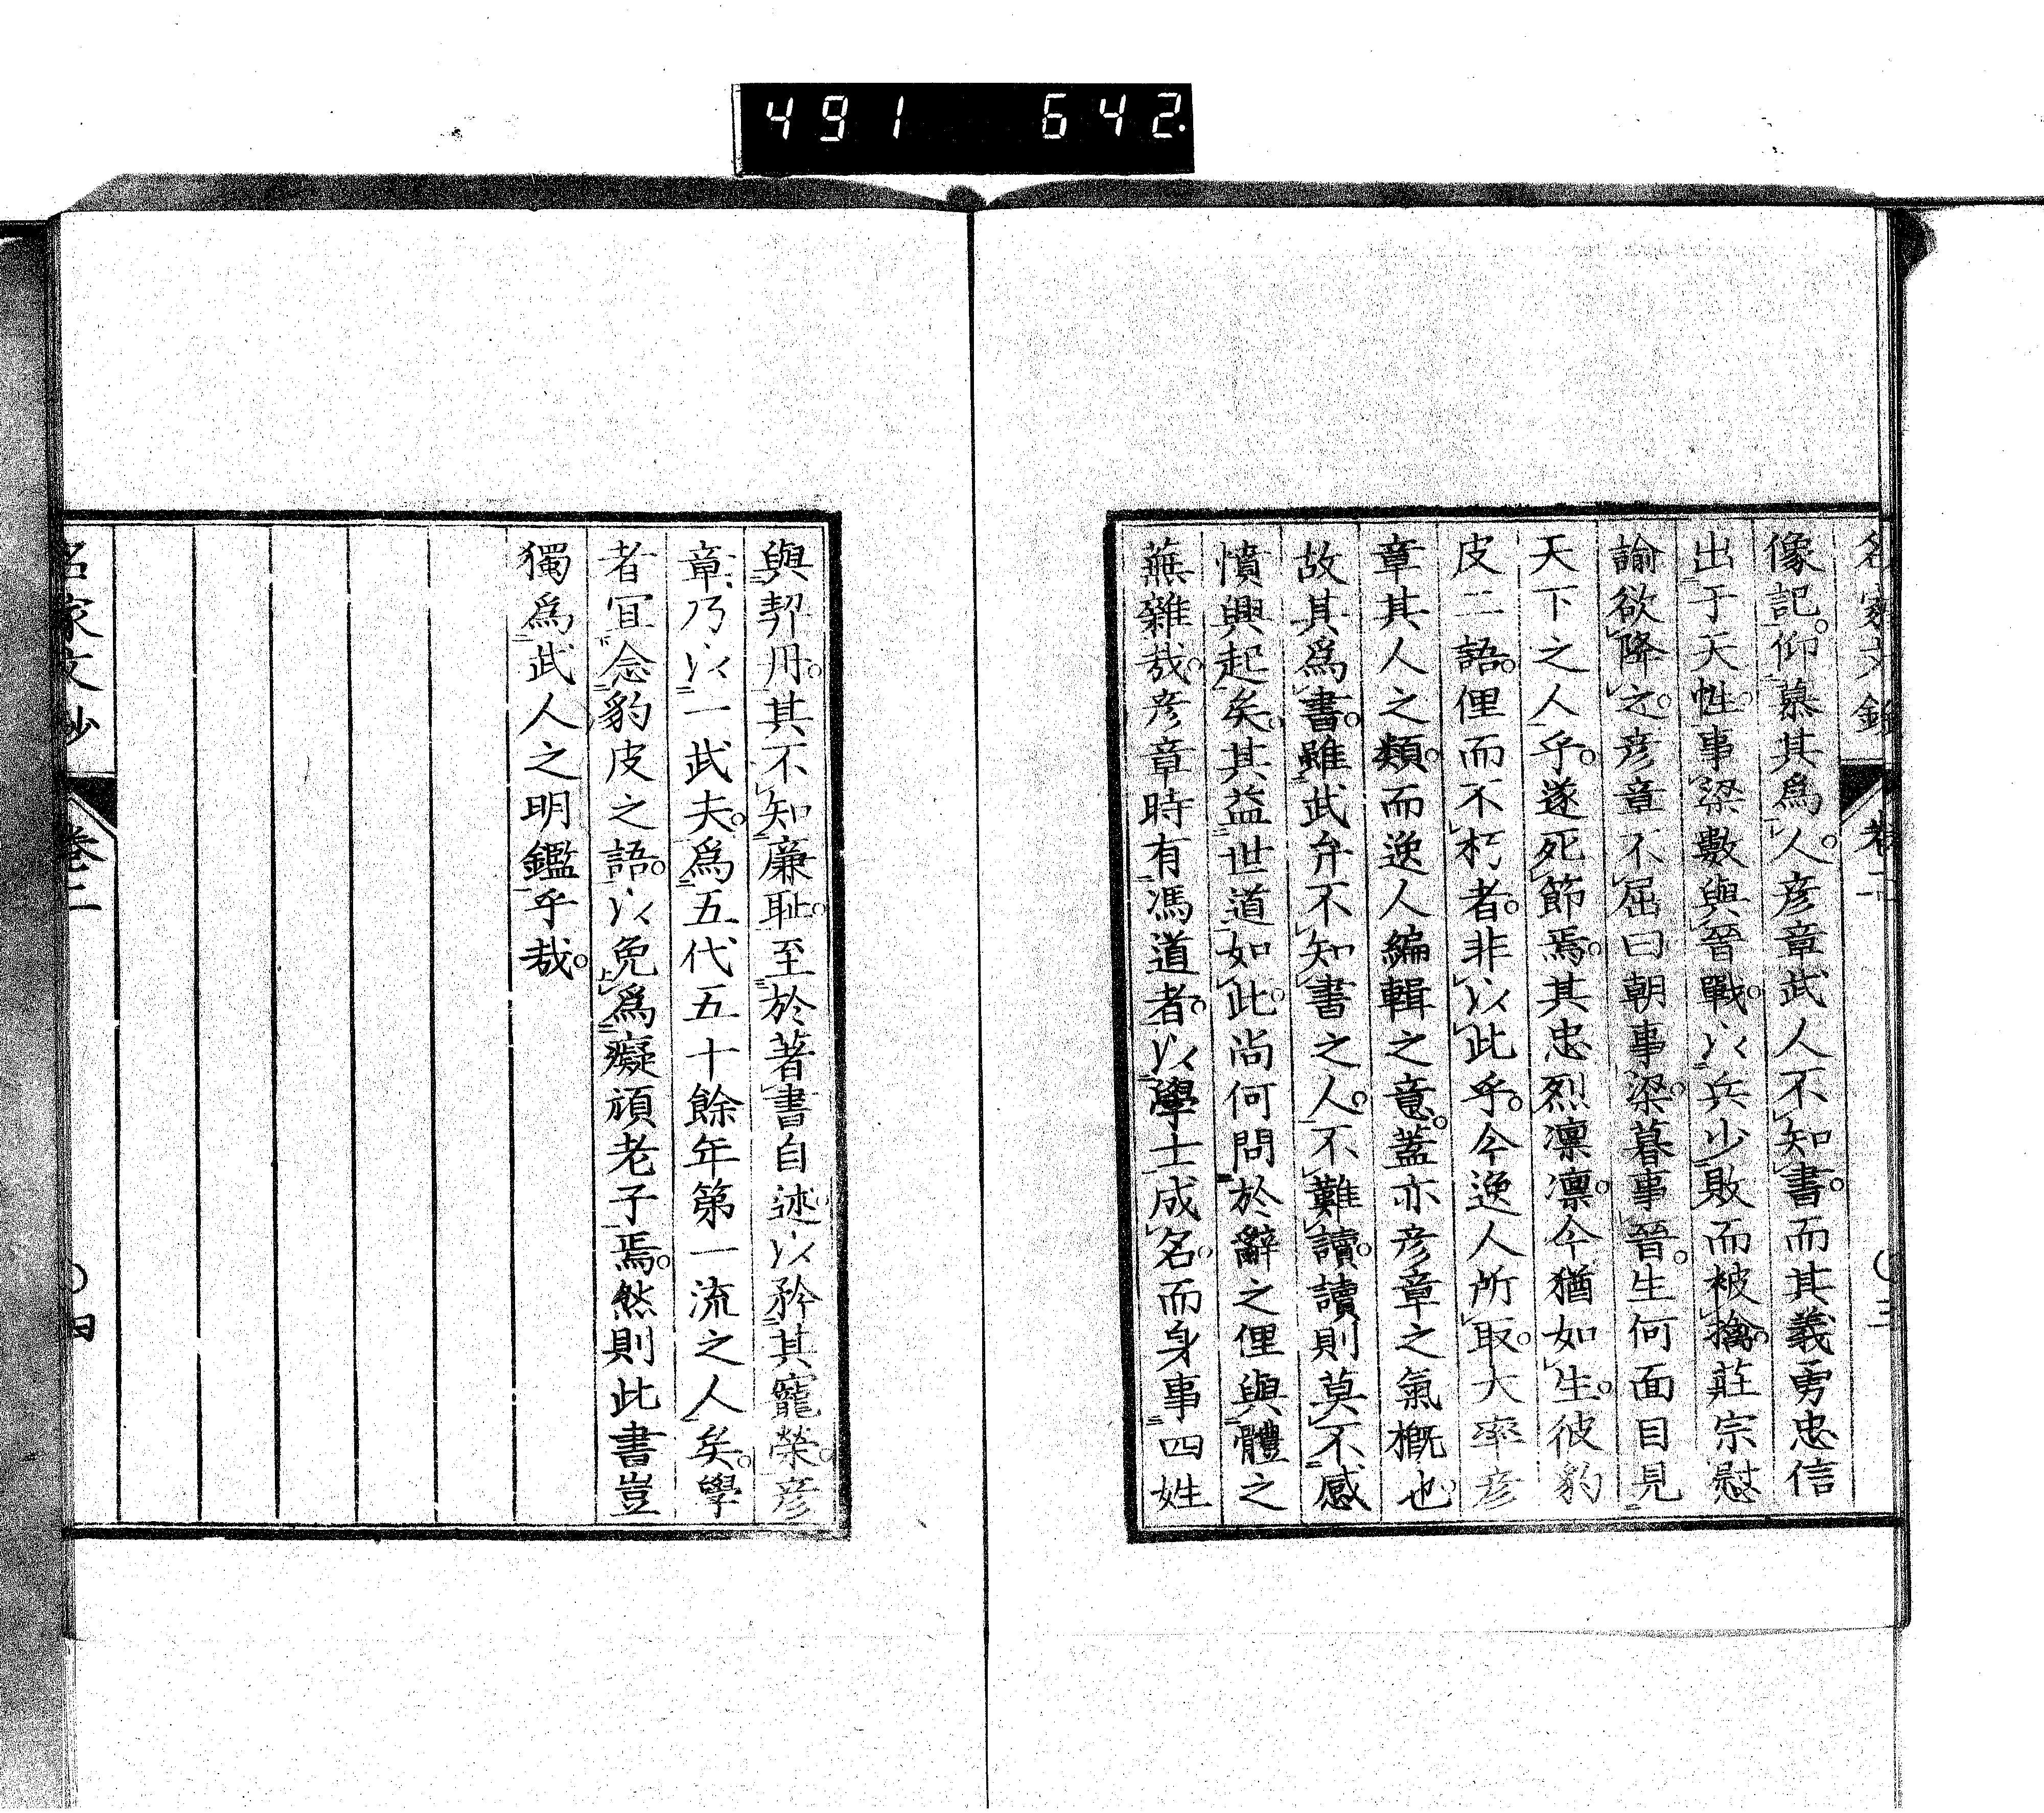 491 642
名家文鈔 卷二 〇三
像記。仰慕其爲人。彦章武人不知書。而其義勇忠信
出于天性。事梁數與晉戰。以兵少敗而被擒。莊宗慰
諭欲降之。彦章不屈曰朝事梁。暮事晉。生何面目見
天下之人乎。遂死節焉。其忠烈凛凛。今猶如生。彼豹
皮二語。俚而不朽者。非以此乎。今逸人所取。大率彦
章其人之類。而逸人編輯之意。蓋亦彦章之氣概也。
故其爲書。雖武弁不知書之人。不難讀。讀則莫不感
憤興起矣。其益世道如此。尚何問於辭之俚與體之
蕪雜哉。彦章時有馮道者。以學士成名。而身事四姓
與契丹。其不知廉恥。至於著書自述。以矜其寵榮。彦
章乃以一武夫。爲五代五十餘年第一流之人矣。學
者宜念豹皮之語。以免爲癡頑老子焉。然則此書豈
獨爲武人之明鑑乎哉。
名家文鈔 卷二 〇四